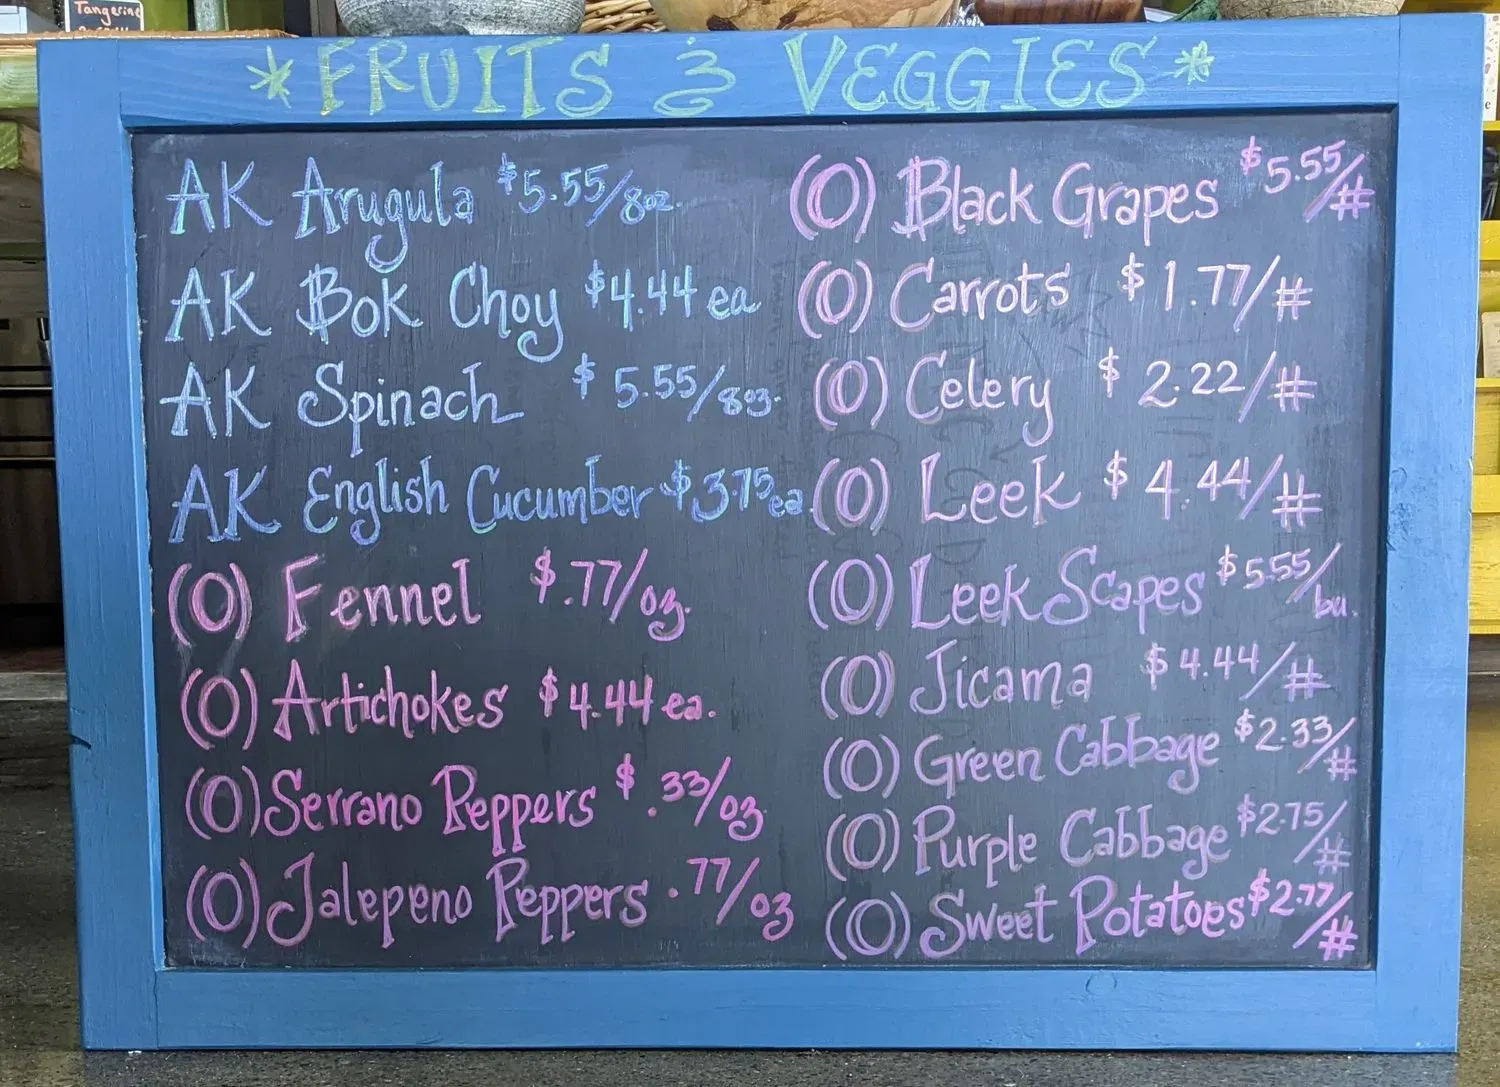 Tangerine
*FRUITS & VEGGIES*
AK Arugula $5.55/8oz.
AK Bok Choy $4.44 ea
AK Spinach $5.55/8oz.
AK English Cucumber $3.75 ea.
(O) Fennel $.77/oz.
(O) Artichokes $4.44 ea.
(O) Serrano Peppers $.33/oz.
(O) Jalepeno Peppers .77/oz
(O) Black Grapes $5.55/#
(O) Carrots $1.77/#
(O) Celery $2.22/#
(O) Leek $4.44/#
(O) Leek Scapes $5.55/bu.
(O) Jicama $4.44/#
(O) Green Cabbage $2.33/#
(O) Purple Cabbage $2.75/#
(O) Sweet Potatoes $2.77/#